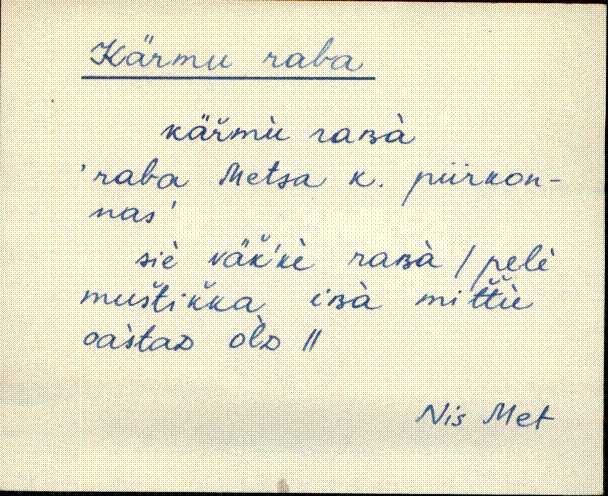 Kärmu raba
kär̆mù raʙà
'raba Metsa k. piirkon-
nas'
siè väk̆'k̀è raʙà / pelè
mus̆tik̆ka iʙà mit̆t̆ù
oàstaᴅ òlᴅ //
Nis Met